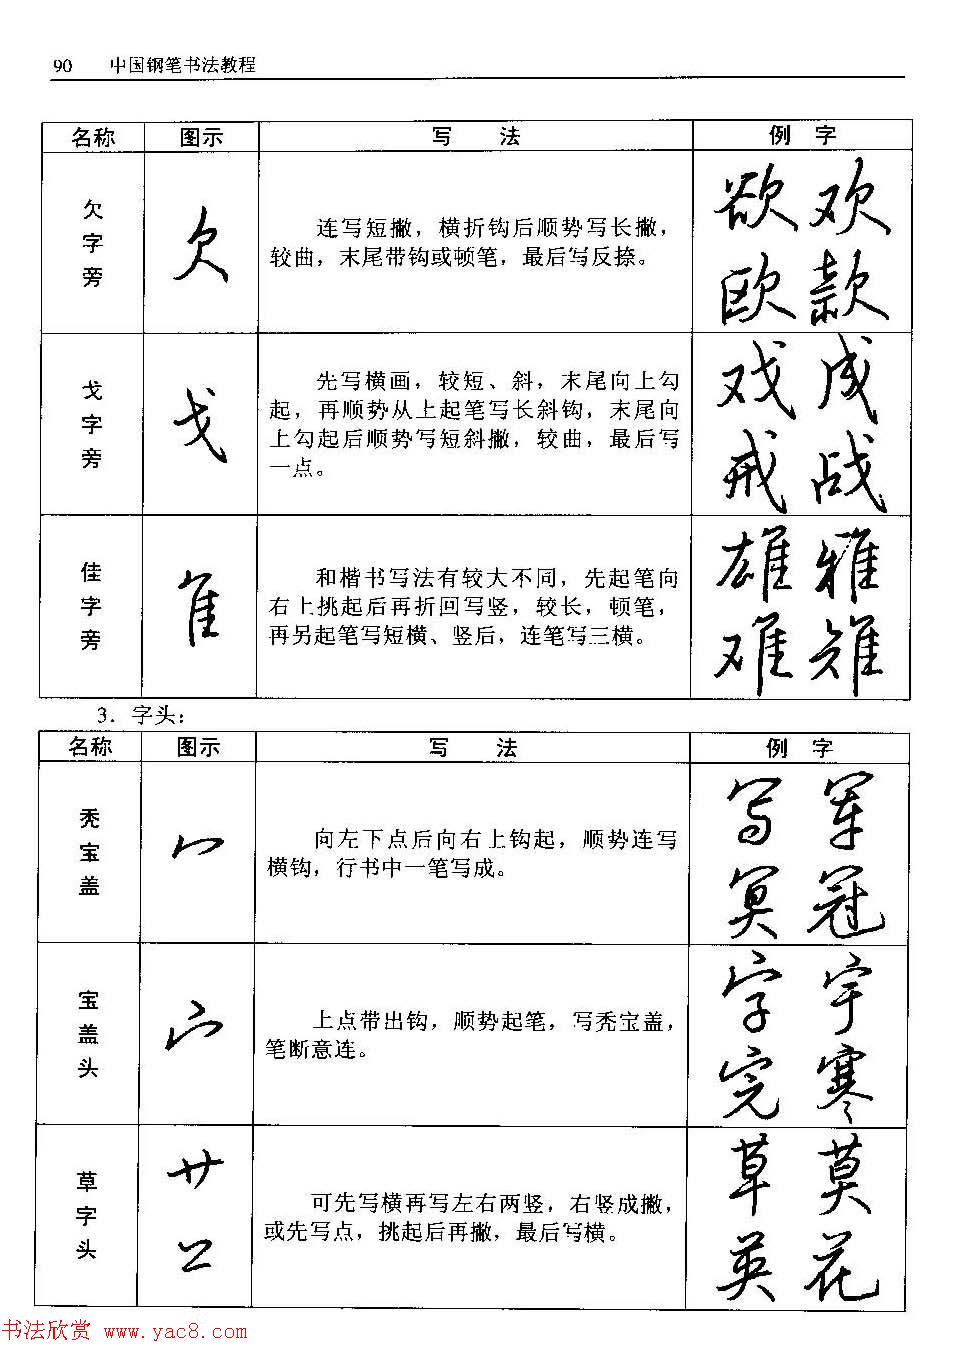 90 中国钢笔书法教程
名称 图示 写 法 例 字
欠字旁 欠 连写短撇，横折钩后顺势写长撇，
较曲，末尾带钩或顿笔，最后写反捺。
欲 欢
欧 款
戈字旁 戈 先写横画，较短、斜，末尾向上勾
起，再顺势从上起笔写长斜钩，末尾向
上勾起后顺势写短斜撇，较曲，最后写
一点。
戏 成
戒 战
佳字旁 隹 和楷书写法有较大不同，先起笔向
右上挑起后再折回写竖，较长，顿笔，
再另起笔写短横、竖后，连笔写三横。
雄 雅
难 雉
3. 字头：
名称 图示 写 法 例 字
秃宝盖 冖 向左下点后向右上钩起，顺势连写
横钩，行书中一笔写成。
写 军
冥 冠
宝盖头 宀 上点带出钩，顺势起笔，写秃宝盖，
笔断意连。
字 宇
完 寒
草字头 艹 可先写横再写左右两竖，右竖成撇，
或先写点，挑起后再撇，最后写横。
草 莫
英 花
书法欣赏 www.yac8.com